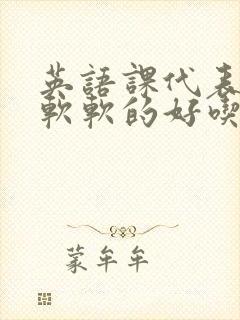 英語課代表
軟軟的好喫
蒙牟牟